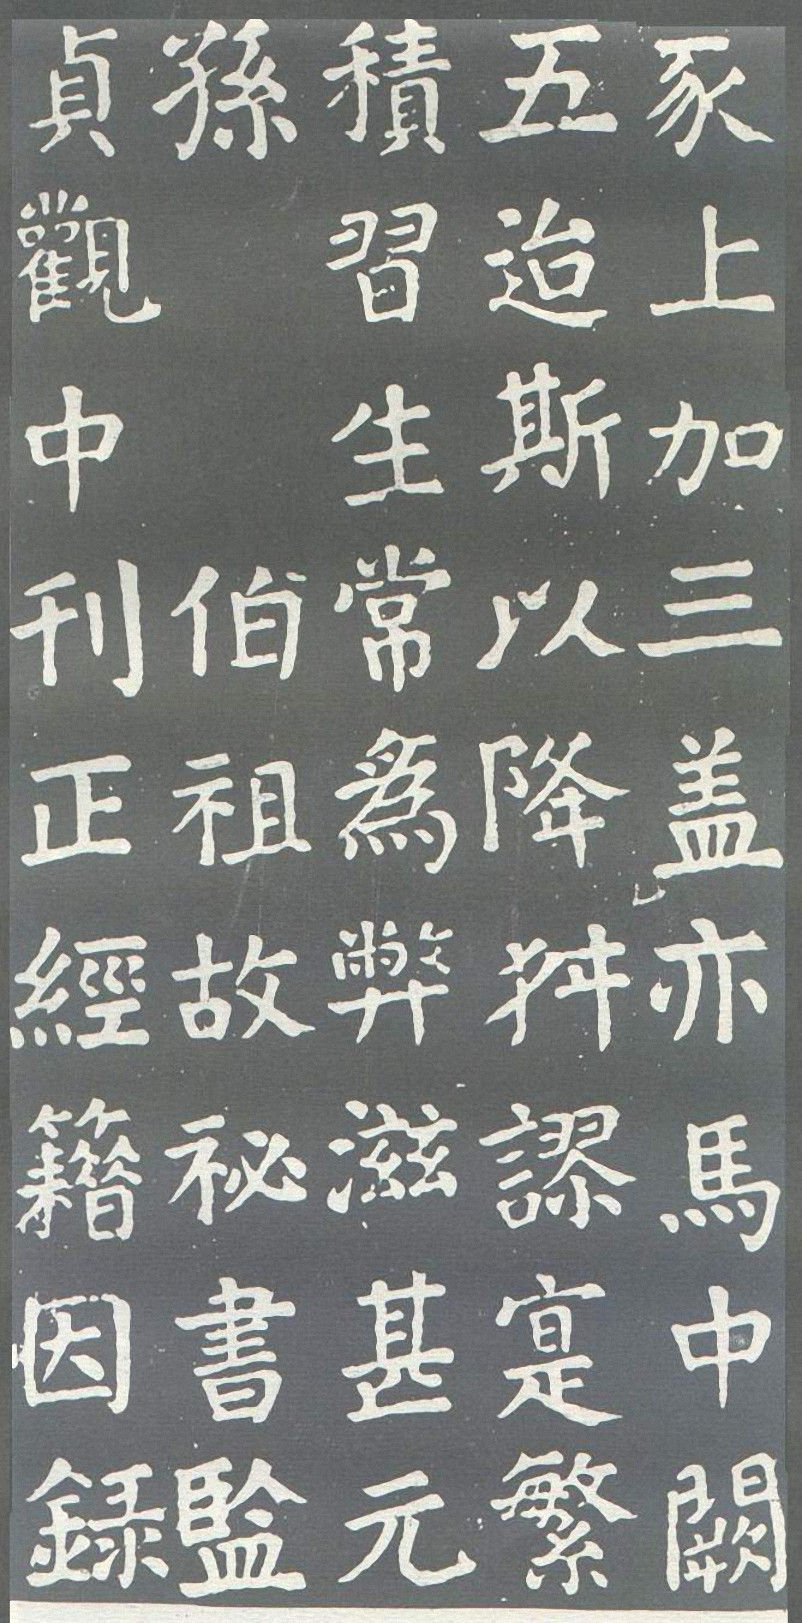 豕上加三盖亦馬中闕
五迨斯以降舛謬寔繁
積習生常爲弊滋甚元
孫伯祖故祕書監
貞觀中刊正經籍因録